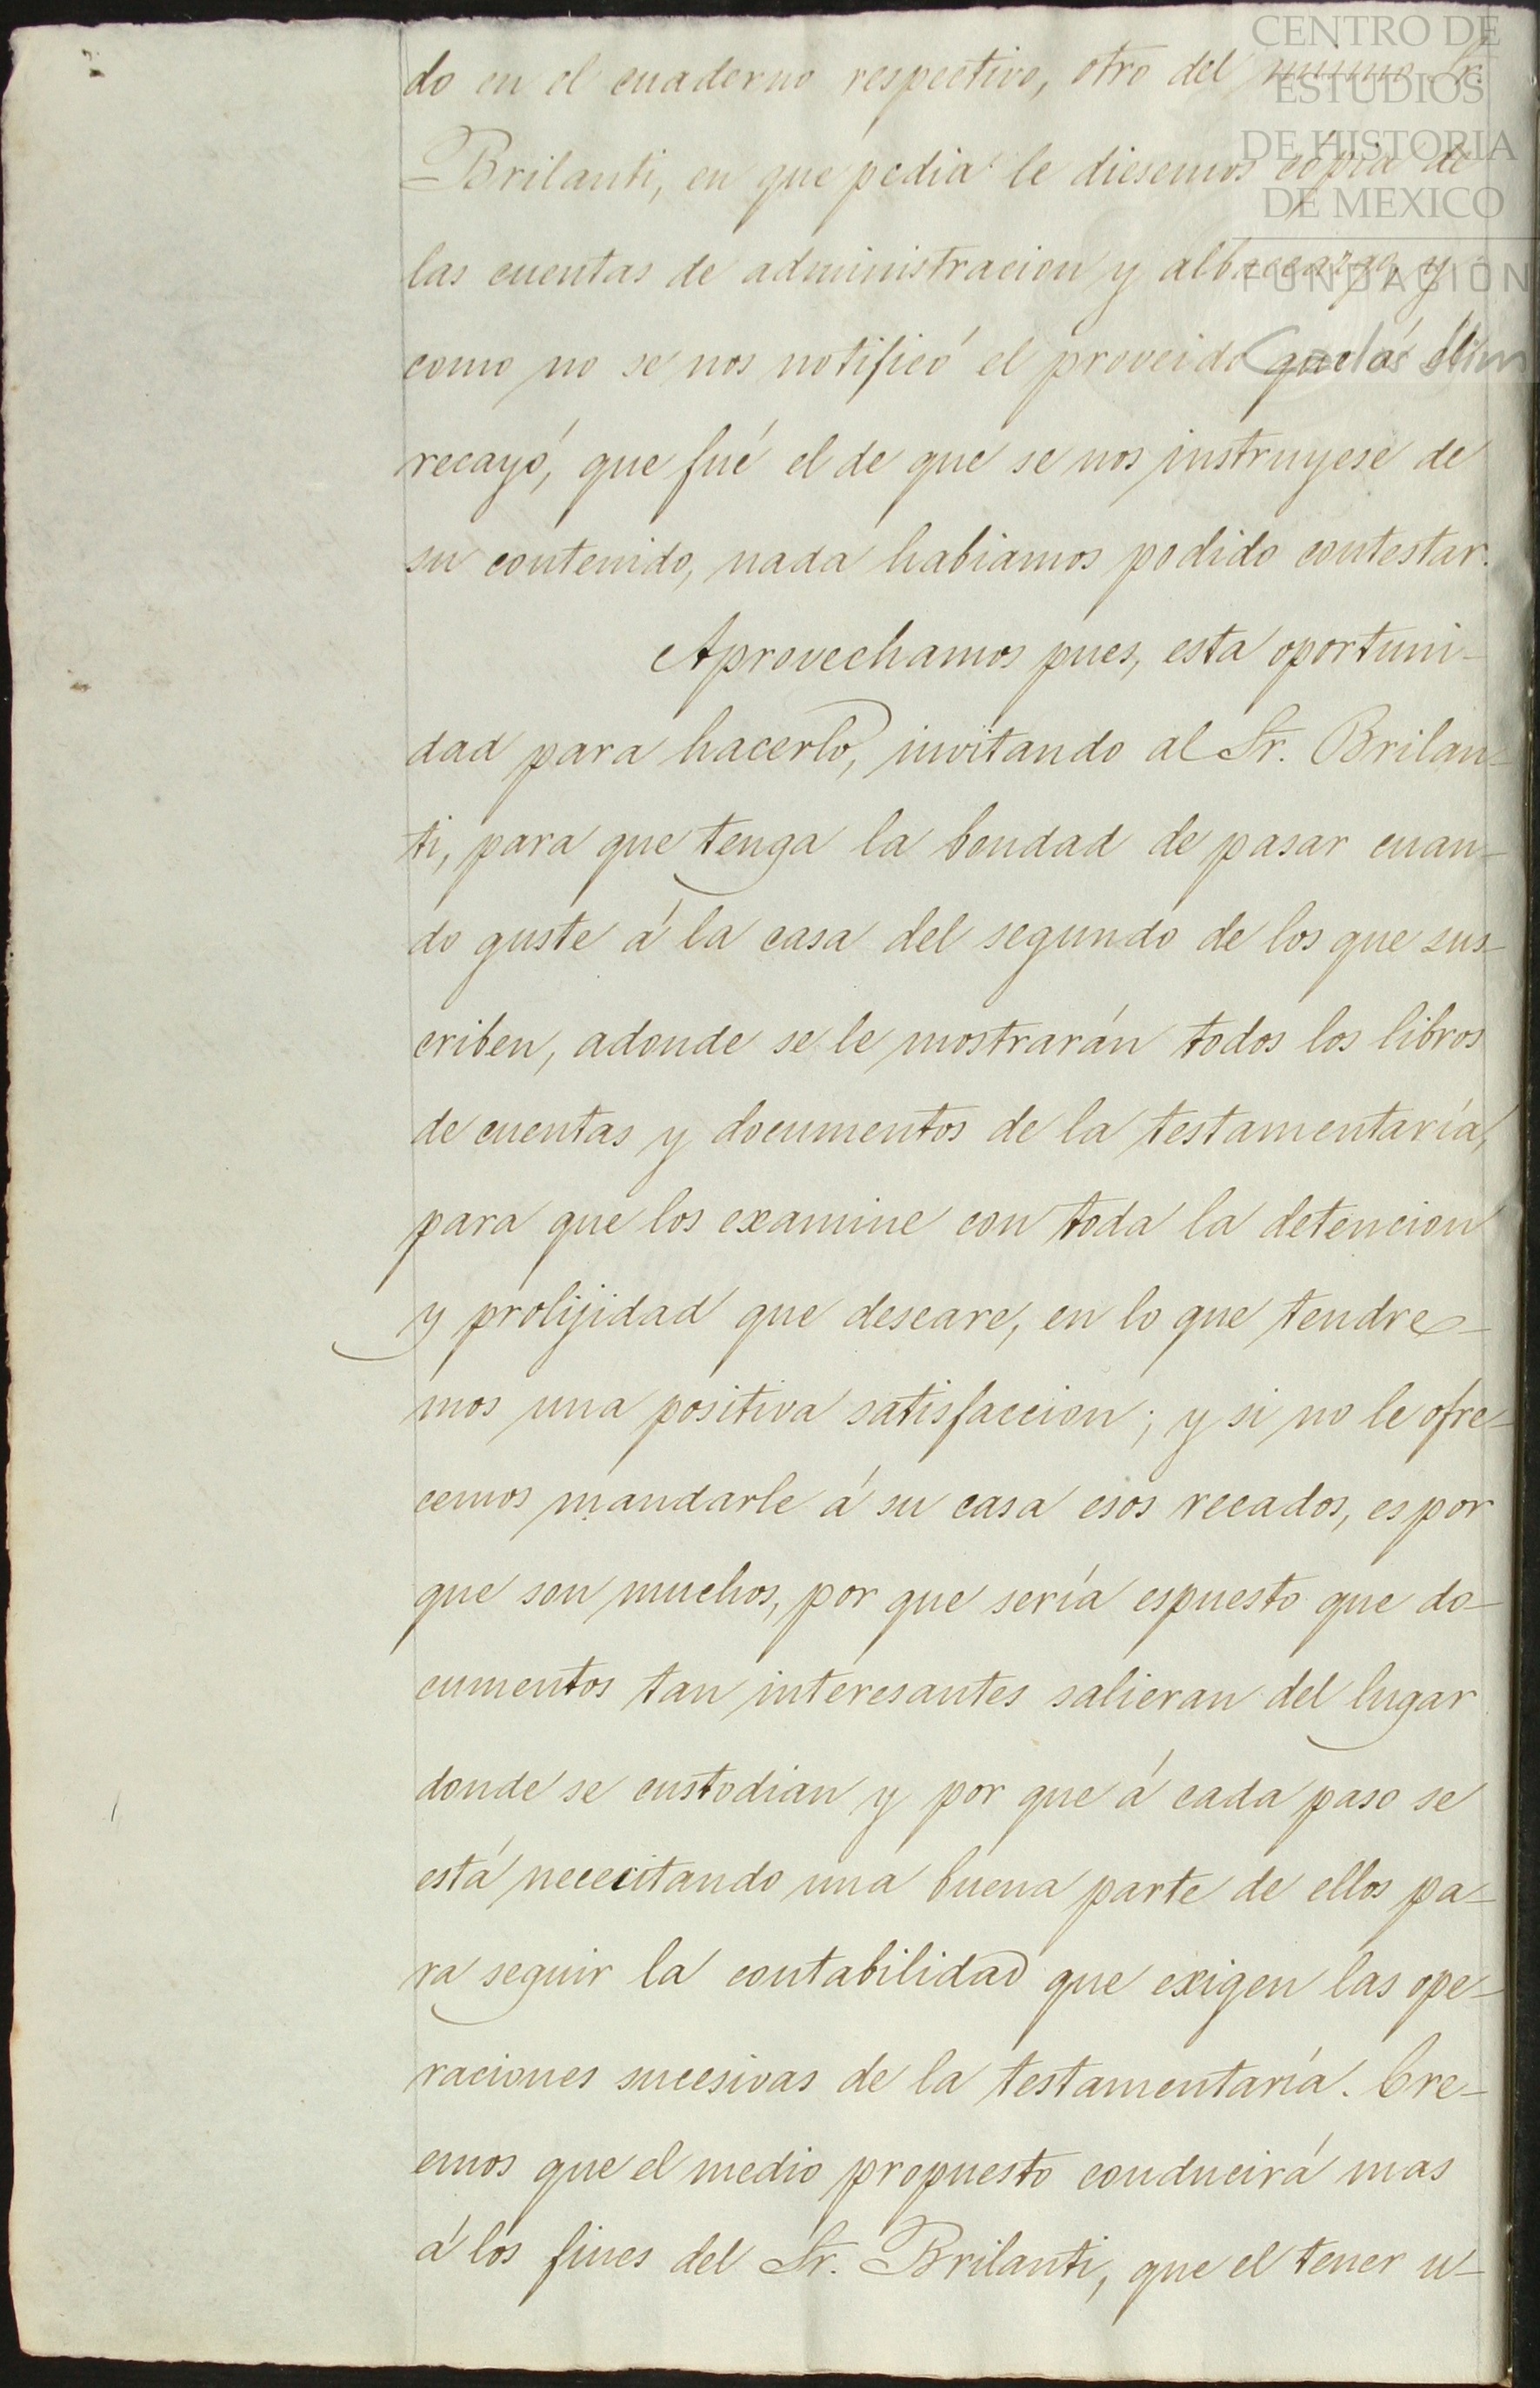 CENTRO DE
ESTUDIOS
DE HISTORIA
DE MEXICO
FUNDACIÓN
Carlos Slim
do en el cuaderno respectivo, otro del mismo Sr.
Brilanti, en que pedia le diesemos cópia de
las cuentas de administracion y albaceazgo y
como no se nos notificó el proveido que á él
recayó, que fué el de que se nos instruyese de
su contenido, nada habiamos podido contestar.
Aprovechamos pues, esta oportuni-
dad para hacerlo, invitando al Sr. Brilan-
ti, para que tenga la bondad de pasar cuan-
do guste á la casa del segundo de los que sus-
criben, adonde se le mostrarán todos los libros
de cuentas y documentos de la testamentaría,
para que los examine con toda la detencion
y prolijidad que deseare, en lo que tendre-
mos una positiva satisfaccion; y si no le ofre-
cemos mandarle á su casa esos recados, es por
que son muchos, por que sería espuesto que do-
cumentos tan interesantes salieran del lugar
donde se custodian y por que á cada paso se
está necesitando una buena parte de ellos pa-
ra seguir la contabilidad que exigen las ope-
raciones sucesivas de la testamentaría. Cre-
emos que el medio propuesto conducirá mas
á los fines del Sr. Brilanti, que el tener u-